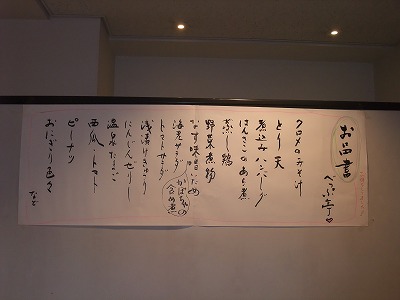 お品書
べっぷ亭♡
クロメのみそ汁
とり天
煮込みハンバーグ
はんさこのあら煮
蒸し鶏
野菜煮物
なす味噌いため
かぼちゃの含め煮
海老サラダ
トマトサラダ
浅漬けきゅうり
にんじんゼリー
温泉たまご
西瓜・トマト
ピーナツ
おにぎり色々
など